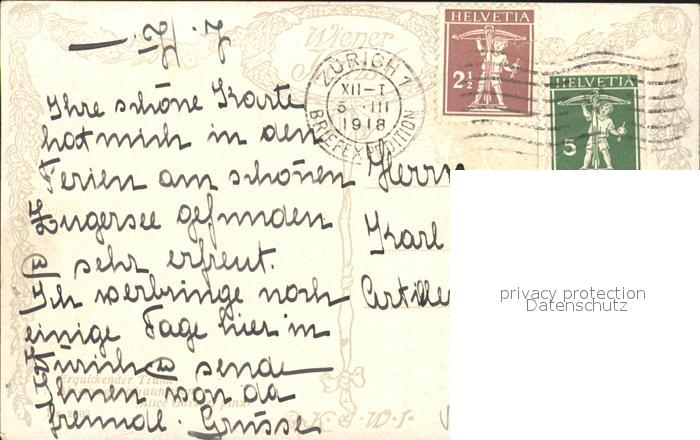 Wiener
HELVETIA
2½
HELVETIA
5
ZÜRICH 1
XII-I
5. III
1918
BRIEFEXPEDITION
Ihre schöne Karte
hat mich in den
Ferien am schönen
Zugersee gefunden
& sehr erfreut.
Ich verbringe noch
einige Tage hier in
Zürich & sende
Ihnen von da
freundl. Grüsse
Herrn
Karl
Artille
privacy protection
Datenschutz
Erquickender Trunk
K. W. I.